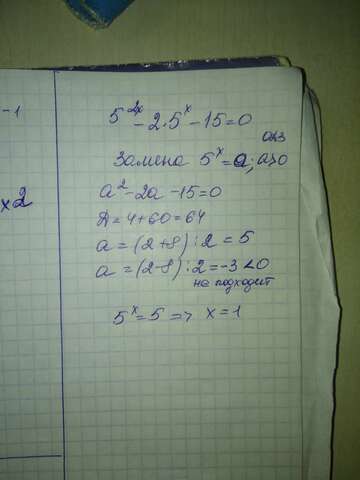 -1
x2
5^2x - 2·5^x - 15 = 0
ОДЗ
Замена 5^x = a; a>0
a² - 2a - 15 = 0
Д = 4 + 60 = 64
a = (2+8) : 2 = 5
a = (2-8) : 2 = -3 < 0
не подходит
5^x = 5 => x = 1